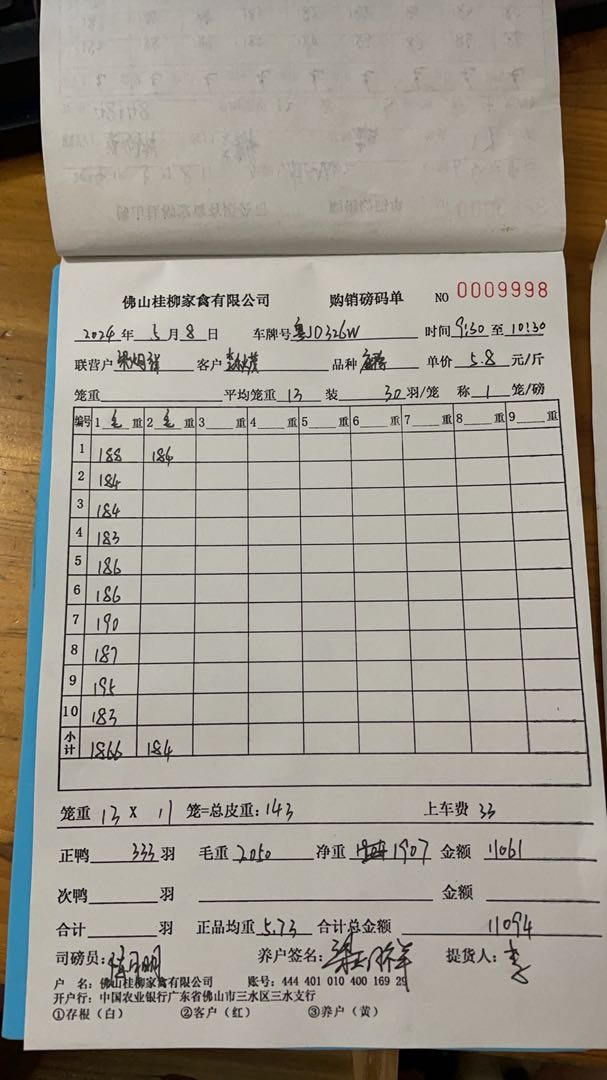 佛山桂柳家禽有限公司 购销磅码单 NO 0009998
2024 年 5 月 8 日 车牌号 粤JD326W 时间 9:30 至 10:30
联营户 客户 品种 单价 5.8 元/斤
笼重 平均笼重 13 装 30 羽/笼 称 1 笼/磅
编号 1 毛 重 2 毛 重 3 重 4 重 5 重 6 重 7 重 8 重 9 重
1 188 184
2 184
3 184
4 183
5 186
6 186
7 190
8 187
9 195
10 183
小计 1866 184
笼重 13 X 11 笼=总皮重: 143 上车费 33
正鸭 333 羽 毛重 2050 净重 1907 金额 11061
次鸭 羽 金额
合计 羽 正品均重 5.73 合计总金额 11094
司磅员: 养户签名: 提货人: 李
户 名: 佛山桂柳家禽有限公司 账号: 444 401 010 400 169 29
开户行: 中国农业银行广东省佛山市三水区三水支行
①存根（白） ②客户（红） ③养户（黄）